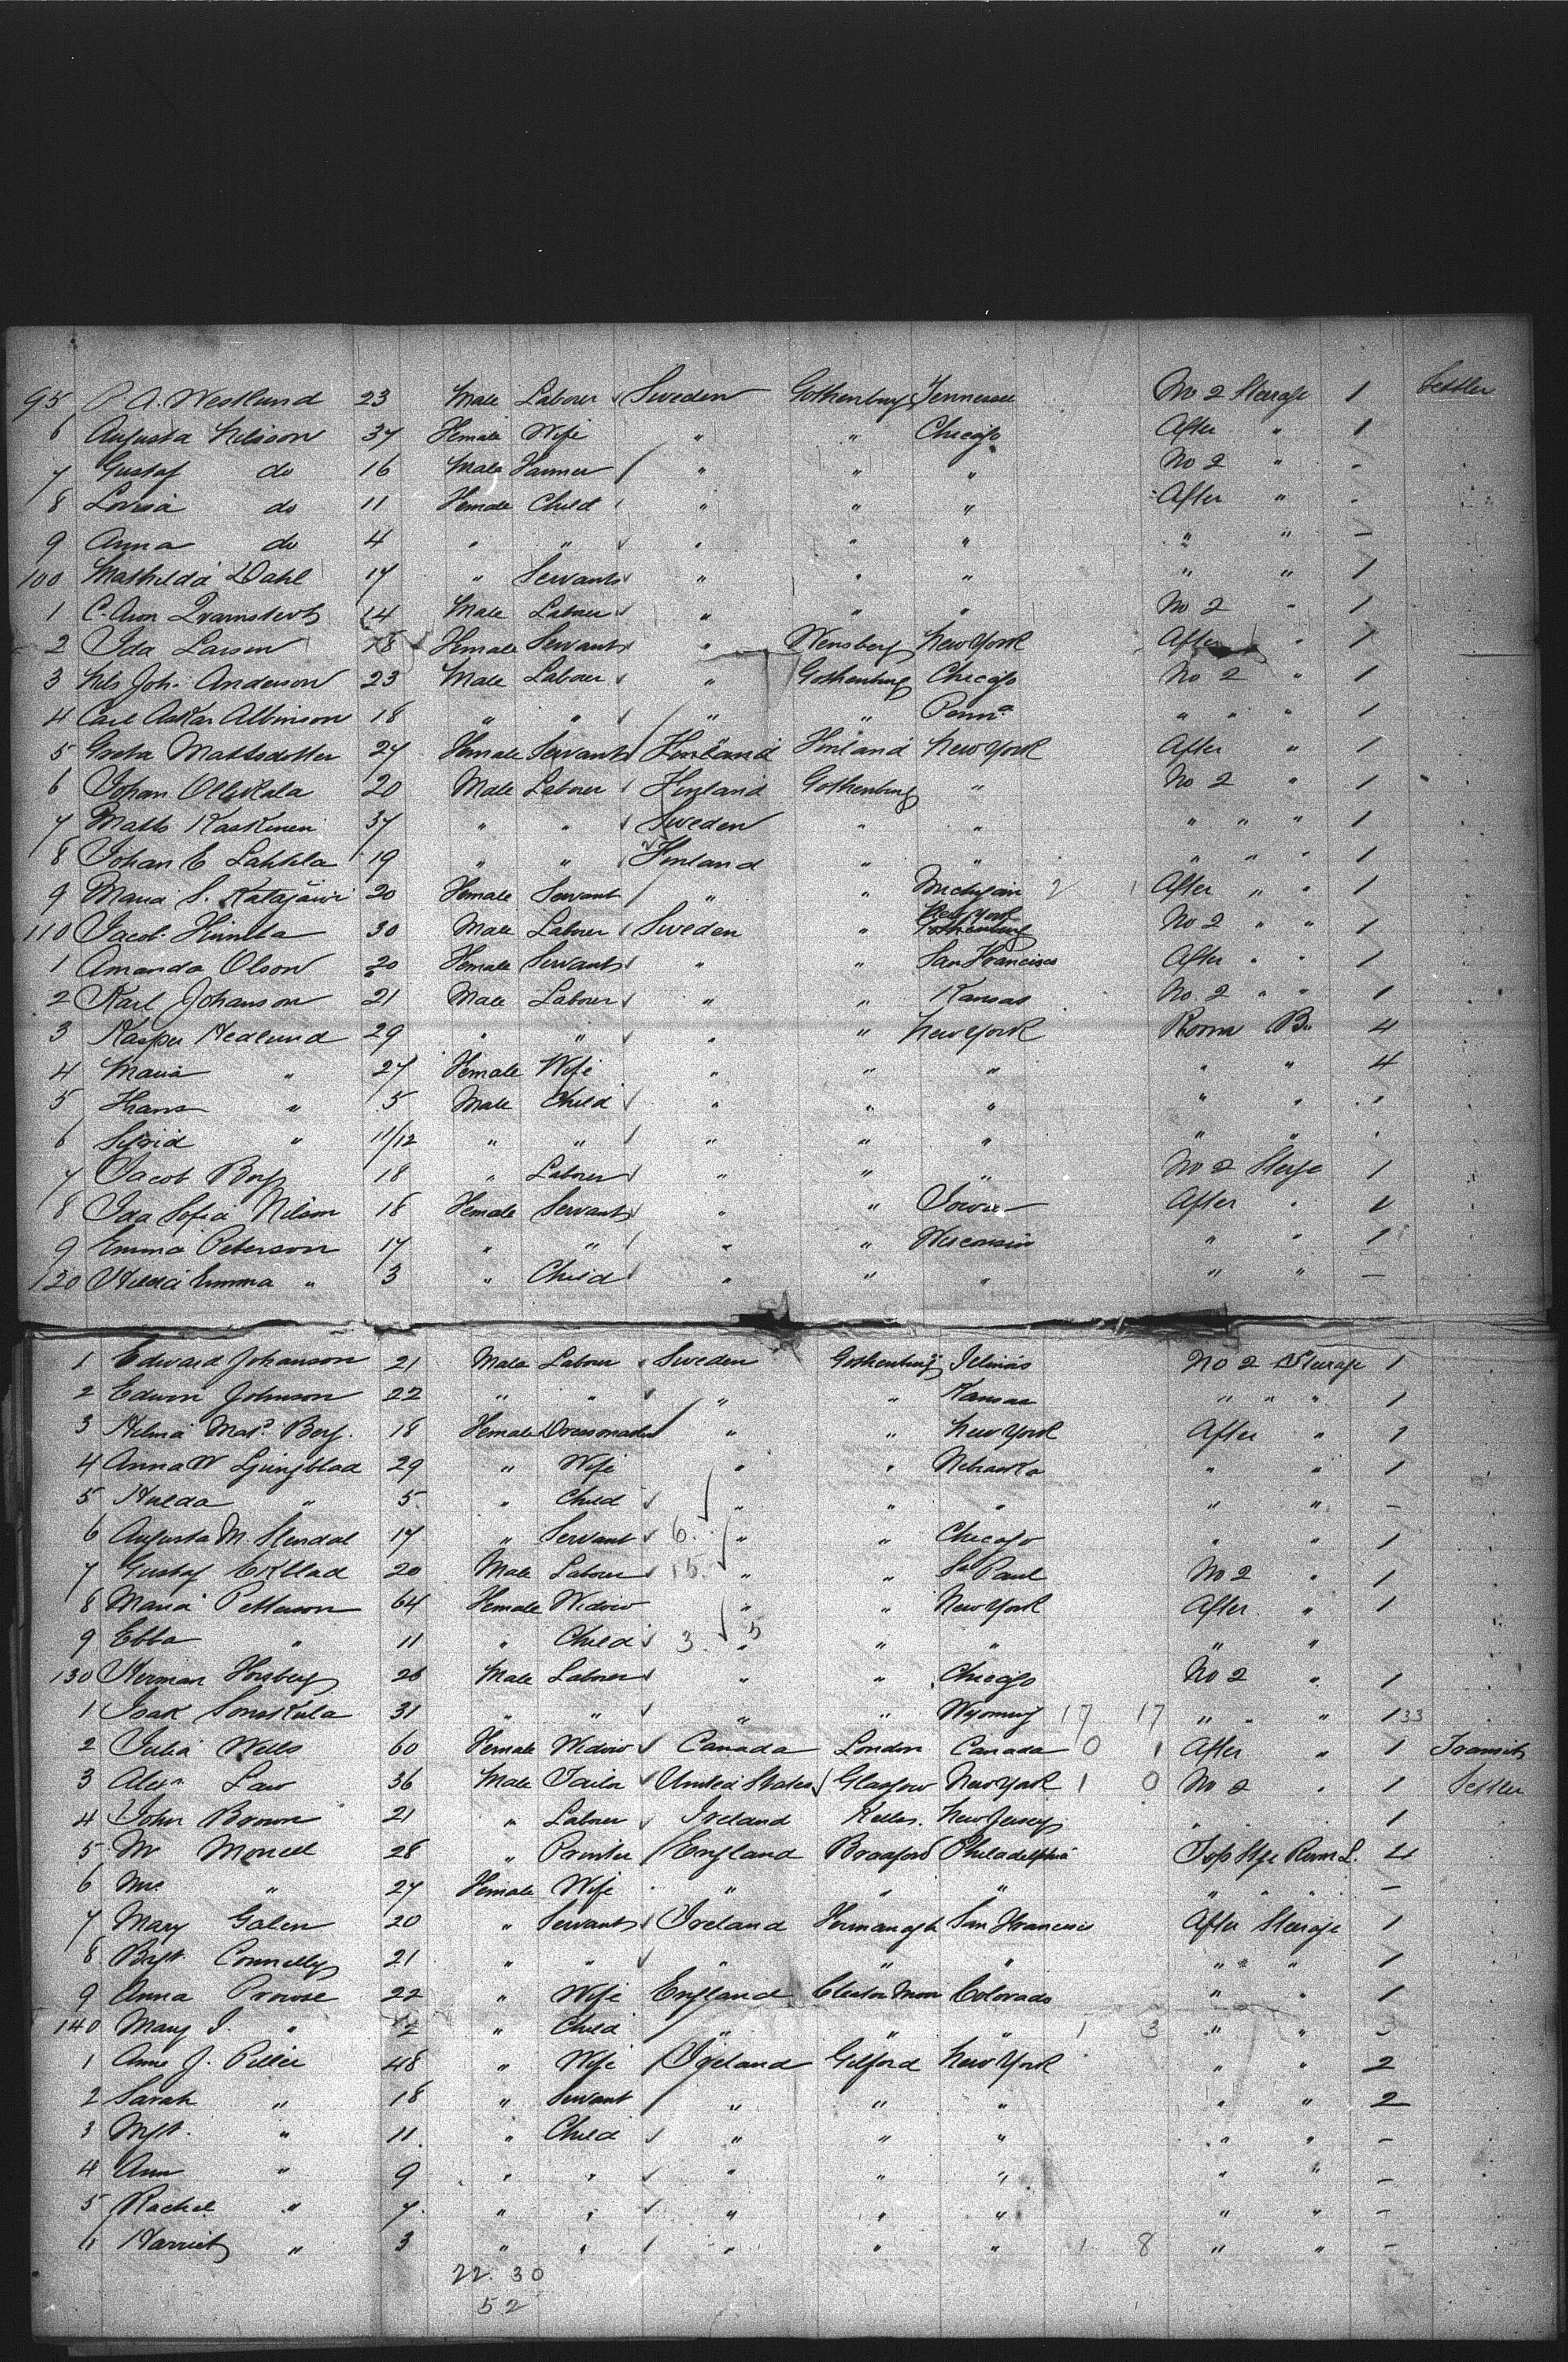 95 P A. Westlund 23 Male Laborer Sweden Gothenburg Tennessee No 2 Steerage 1 Settler
6 Augusta Nilsson 37 Female Wife " " Chicago After " 1
7 Gustaf do 16 Male Farmer " " " No 2 " -
8 Lovisa do 11 Female Child " " " After " -
9 Anna do 4 " " " " " " " -
100 Mathilda Dahl 17 " Servant " " " " " 1
1 C. Aron 14 Male Laborer " " " No 2 " 1
2 Ida Larsen 18 Female Servant " Wensberg New York After " 1
3 Nils Joh. Anderson 23 Male Laborer " Gothenburg Chicago No 2 " 1
4 Carl Askar Albinson 18 " " " " Penna " " " 1
5 Greta Mattsdotter 27 Female Servant Finland Finland New York After " 1
6 Johan Ollikala 20 Male Laborer Finland Gothenburg " No 2 " 1
7 Matts Kaskinen 37 " " Sweden " " " " " 1
8 Johan E Lahkla 19 " " Finland " " " " " 1
9 Maria S. Katajawi 20 Female Servant " " Michigan 2 1 After " " 1
110 Jacob Humla 30 Male Laborer Sweden " New York Gothenburg No 2 " " 1
1 Amanda Olson 20 Female Servant " " San Francisco After " " 1
2 Karl Johanson 21 Male Laborer " " Kansas No. 2 " " 1
3 Kasper Hedlund 29 " " " " New York Room B 4
4 Maria " 27 Female Wife " " " " " 4
5 Frans " 5 Male Child " " " " " "
6 Sigrid " 11/12 " " " " " " "
7 Jacob Berg 18 " Laborer " " " No 2 Steerge 1
8 Ida Sofia Nilson 18 Female Servant " " Iowa After " 1
9 Emma Peterson 17 " " " " Wisconsin " " 1
120 Hilda Emma " 3 " Child " " " " " -
1 Edward Johanson 21 Male Laborer Sweden Gothenburg Illinois No 2 Steerage 1
2 Edwin Johnson 22 " " " " Kansas " " " 1
3 Hilma Mat. Berg. 18 Female Dressmaker " " New York After " 1
4 Anna W Ljungblad 29 " Wife " " Nebraska " " 1
5 Hulda " 5 " Child " " " " " -
6 Augusta M. Stendal 17 " Servant 6. " " Chicago " " 1
7 Gustaf Ekblad 20 Male Laborer 15. " " St Paul No 2 " 1
8 Maria Petterson 64 Female Widow " " New York After " 1
9 Ebba " 11 " Child 3. 5 " " " " "
130 Herman Forsberg 26 Male Laborer " " Chicago No 2 " 1
1 Isak Sonskula 31 " " " " Wyoming 17 17 " " " 1 33
2 Julia Wells 60 Female Widow Canada London Canada 0 1 After " 1 Transit
3 Alexr Law 36 Male Tailor United States Glasgow New York 1 0 No 2 " 1 Settler
4 John Brown 21 " Laborer Ireland Kells. New Jersey " " 1
5 Mr Morrell 28 " Printer England Bradford Philadelphia Top Stge Room L. 4
6 Mrs " 27 Female Wife " " " " " " -
7 Mary Galen 20 " Servant Ireland Fermanagh San Francisco After Steerage 1
8 Bgt. Connelly 21 " " " " " " " " 1
9 Anna Prowse 22 " Wife England Colorado " " 1
140 Mary J. " 2 " Child " " " 1 3 " " 3
1 Anne J. Pillie 48 " Wife Ireland Gilford New York " " 2
2 Sarah " 18 " Servant " " " " " 2
3 Mgt. " 11 " Child " " " " " -
4 Ann " 9 " " " " " " " -
5 Rachel " 7 " " " " " " " -
6 Harriet " 3 " " " " " 1 8 " " -
22. 30
52